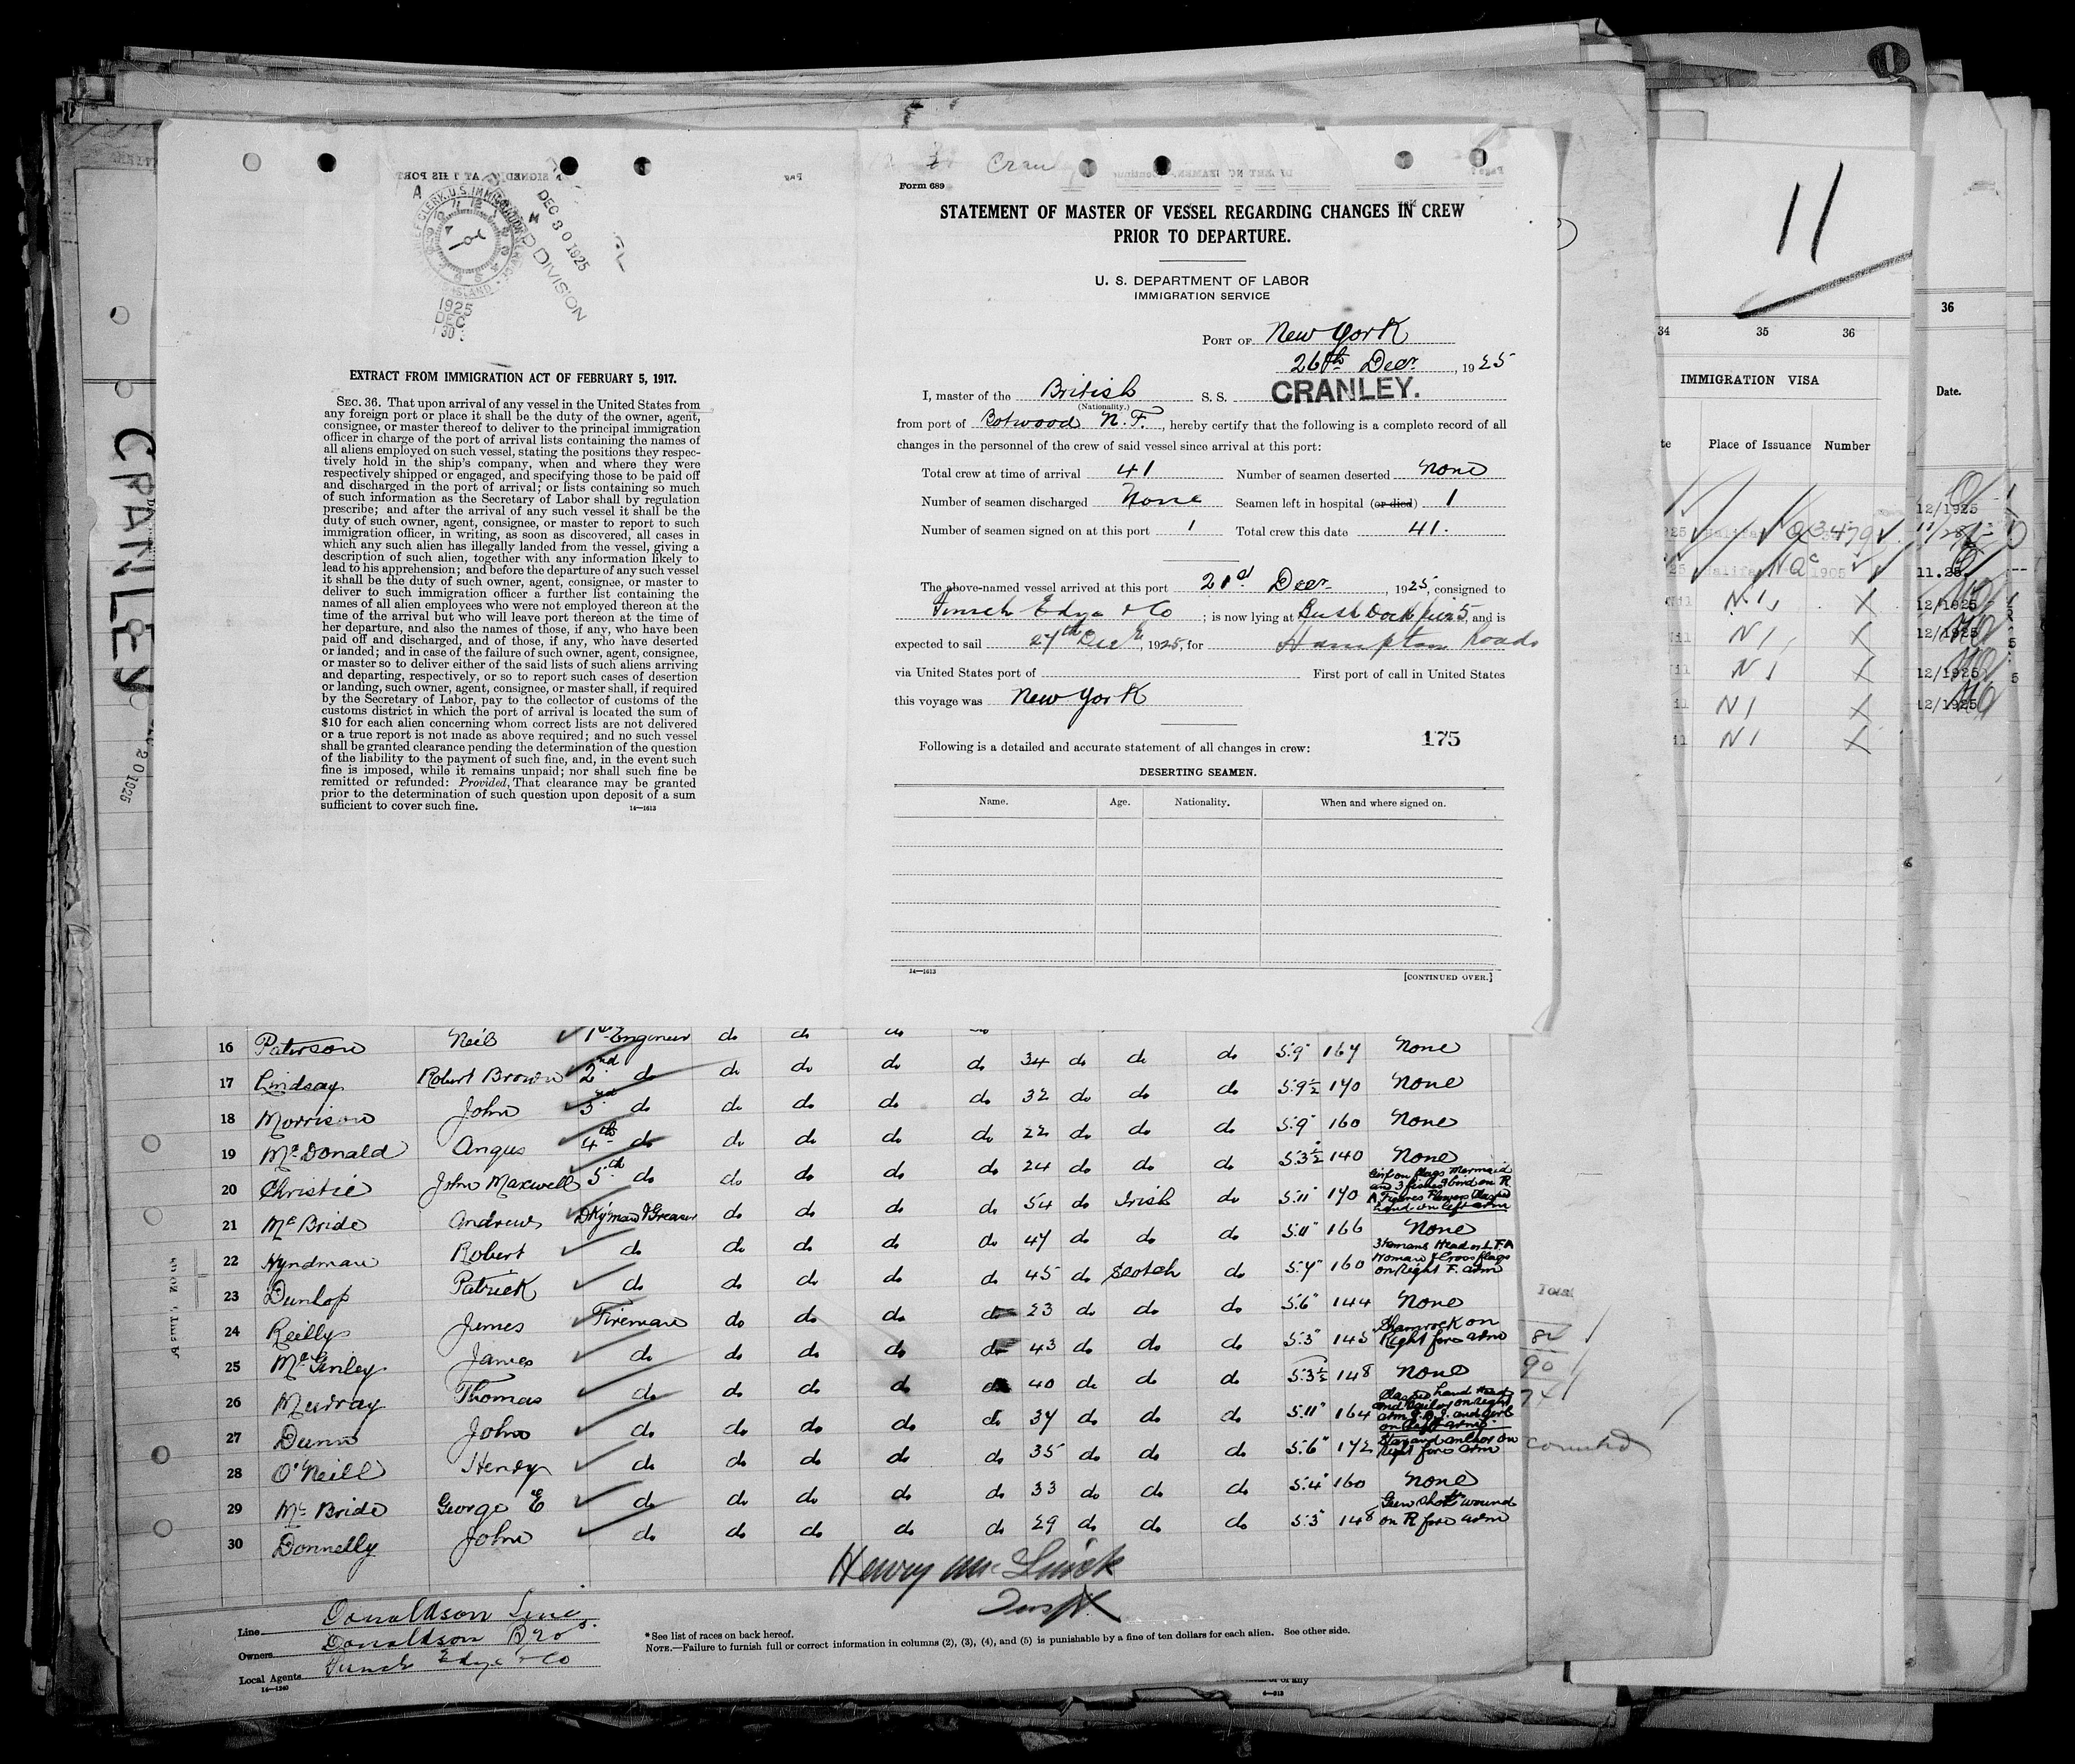 DEC 30 1925
DIVISION
1925
DEC
30
EXTRACT FROM IMMIGRATION ACT OF FEBRUARY 5, 1917.
SEC. 36. That upon arrival of any vessel in the United States from
any foreign port or place it shall be the duty of the owner, agent,
consignee, or master thereof to deliver to the principal immigration
officer in charge of the port of arrival lists containing the names of
all aliens employed on such vessel, stating the positions they respec-
tively hold in the ship's company, when and where they were
respectively shipped or engaged, and specifying those to be paid off
and discharged in the port of arrival; or lists containing so much
of such information as the Secretary of Labor shall by regulation
prescribe; and after the arrival of any such vessel it shall be the
duty of such owner, agent, consignee, or master to report to such
immigration officer, in writing, as soon as discovered, all cases in
which any such alien has illegally landed from the vessel, giving a
description of such alien, together with any information likely to
lead to his apprehension; and before the departure of any such vessel
it shall be the duty of such owner, agent, consignee, or master to
deliver to such immigration officer a further list containing the
names of all alien employees who were not employed thereon at the
time of the arrival but who will leave port thereon at the time of
her departure, and also the names of those, if any, who have been
paid off and discharged, and of those, if any, who have deserted
or landed; and in case of the failure of such owner, agent, consignee,
or master so to deliver either of the said lists of such aliens arriving
and departing, respectively, or so to report such cases of desertion
or landing, such owner, agent, consignee, or master shall, if required
by the Secretary of Labor, pay to the collector of customs of the
customs district in which the port of arrival is located the sum of
$10 for each alien concerning whom correct lists are not delivered
or a true report is not made as above required; and no such vessel
shall be granted clearance pending the determination of the question
of the liability to the payment of such fine, and, in the event such
fine is imposed, while it remains unpaid; nor shall such fine be
remitted or refunded: Provided, That clearance may be granted
prior to the determination of such question upon deposit of a sum
sufficient to cover such fine. 14—1613
Cran
Form 689
STATEMENT OF MASTER OF VESSEL REGARDING CHANGES IN CREW
PRIOR TO DEPARTURE.
U. S. DEPARTMENT OF LABOR
IMMIGRATION SERVICE
PORT OF New York
26th Decr. , 1925
I, master of the British S. S. CRANLEY.
(Nationality.)
from port of Botwood N.F. , hereby certify that the following is a complete record of all
changes in the personnel of the crew of said vessel since arrival at this port:
Total crew at time of arrival 41 Number of seamen deserted None
Number of seamen discharged None Seamen left in hospital (or died) 1
Number of seamen signed on at this port 1 Total crew this date 41.
The above-named vessel arrived at this port 21st Decr. , 1925, consigned to
Funch Edye & Co ; is now lying at Bush Dock pier 5, and is
expected to sail 27th Dec , 1925, for Hampton Roads
via United States port of First port of call in United States
this voyage was New York
Following is a detailed and accurate statement of all changes in crew: 175
DESERTING SEAMEN.
Name. Age. Nationality. When and where signed on.
14—1613 [CONTINUED OVER.]
CRANLEY
20 1925
11
34 35 36
IMMIGRATION VISA
Place of Issuance Number
36
Date.
12/1925
11.25
12/1925
12/1925
12/1925
12/1925
16 Paterson Neil 1st Engineer do do
17 Lindsay Robert Brown 2nd do do do do do 34 do do do 5'9" 167 None
18 Morrison John 3rd do do do do do 32 do do do 5'9½ 170 None
19 McDonald Angus 4th do do do do do 22 do do do 5'9" 160 None
20 Christie John Maxwell 5th do do do do do 24 do do do 5'3½ 140 None
21 McBride Andrew Dkyman & Greaser do do do do 54 do Irish do 5'11" 170
22 Hyndman Robert do do do do do 47 do do do 5'11" 166 None
23 Dunlop Patrick do do do do do 45 do Scotch do 5'7" 160
24 Reilly James Fireman do do do do 23 do do do 5'6" 144 None
25 McGinley James do do do do do 43 do do do 5'3" 145 Shamrock on Right fore arm
26 Murray Thomas do do do do do 40 do do do 5'3½ 148 None
27 Dunn John do do do do do 37 do do do 5'11" 164
28 O'Neill Henry do do do do do 35 do do do 5'6" 172 Star and anchor on Right fore arm
29 McBride George E do do do do do 33 do do do 5'4" 160 None
30 Donnelly John do do do do do 29 do do do 5'5" 148 Gun shot wound on R fore arm
Total
90
74
Line Donaldson Line
Owners Donaldson Bros.
Local Agents Funch Edye & Co
14—1240
* See list of races on back hereof.
NOTE.—Failure to furnish full or correct information in columns (2), (3), (4), and (5) is punishable by a fine of ten dollars for each alien. See other side.